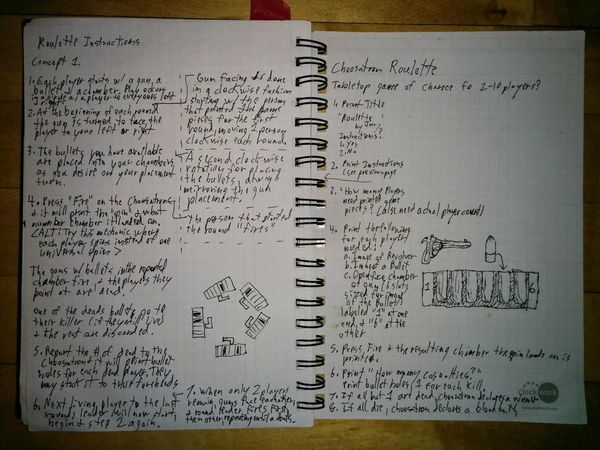 Roulette Instructions
Concept 1.
1. Each player starts w/ a gun, a
bullet & a chamber. Play occurs
w/ a player to everyones left
2. At the beginning of each round
the gun is turned to face the
player to your left or right
3. The bullets you have available
are placed into your chambers
as you desire on your placement
turn.
4. Press "Fire" on the Choosatron
& it will print the "spin" & what
number chamber it landed on.
<ALT: Try this mechanic where
each player spins instead of one
universal spin>
The guns w/ bullets in the reported
chamber fire, & the players they
point at are dead.
one of the deads bullets go to
their killer (if they still live)
& the rest are discarded.
5. Report the # of dead to the
Choosatron & it will print bullet
holes for each dead player. They
may stick it to their foreheads
6. Next living player to the last
round leader will now start,
begin @ step 2 again.
Gun facing is done
in a clockwise fashion
starting w/ the person
that printed the game
pieces for the first
round, moving 1 person
clockwise each round.
A second clockwise
rotation for placing
the bullets, always
mirroring the gun
placement.
The person that started
the round "fires"
7. When only 2 players
remain, guns face each other
& round leader fires first,
then other, repeating until a death.
Choosatron Roulette
Tabletop game of chance for 2-10 players?
1. Print Title
"Roulette
by Jerry
Instructions?
1. Yes
2. No
2. Print Instructions
(see prev page)
3. "How many players
need printed game
pieces?" (also need actual player count)
4. Print the following
for each player
needed:
a. Image of Revolver
b. Image of a Bullet
c. Open face chamber
of gun (6 slots
sized for image
of the bullet)
labeled "1" at one
end, & "6" at the
other
1
6
5. Press, Fire & the resulting chamber the spin lands on is
printed.
6. Print "How many casualties?"
Print bullet holes, 1 for each kill.
7. If all but 1 are dead, choosatron declares a winner
8. If all die, choosatron declares a blood bath.
clockwork